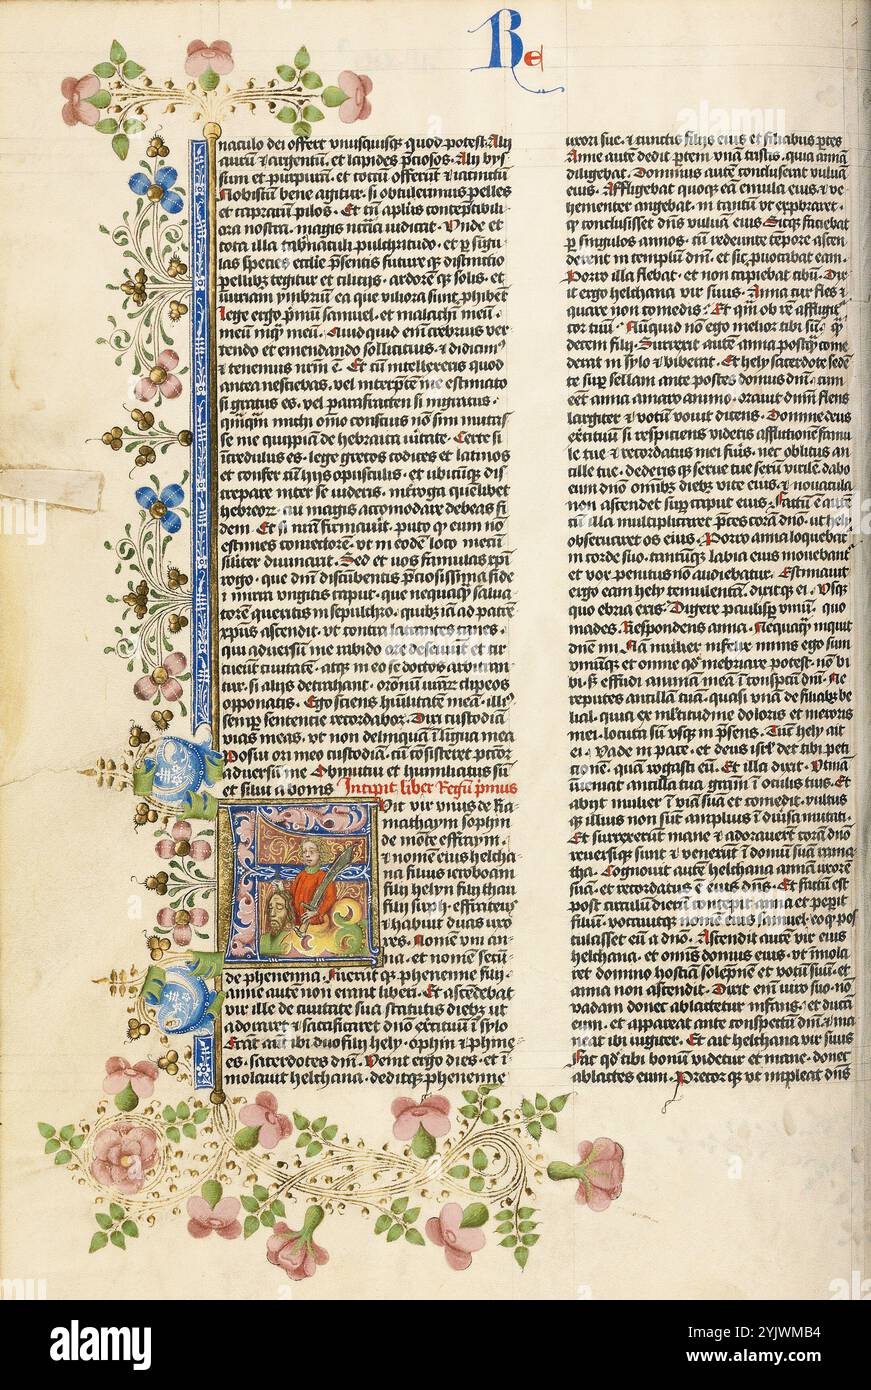 Re
naculo dei offert vnusquisq̄ quod potest. Alij
aurū & argentū, et lapides p̄ciosos. Alij bys
sum et purpurā. et coccū offerūt & iacinctū
Nobiscum bene agitur. si obtulerimus pelles
et caprarum pilos. Et tn̄ aplus contēptibili
ora nostra. magis necessaria iudicat. Vnde et
tota illa tabnaculi pulchritudo. et p singu
las species ecclīe p̄sentis future q̄ distinctio
pellibus tegitur et cilicijs. ardorē q̄ solis. et
iniuriam ymbriū ea que viliora sunt phibēt
Lege ergo p̄mū samuel. et malachī meū.
meū inq̄ meū. Quidquid enī crebrius ver
tendo et emendando sollicitius. & didicim9
& tenemus nr̄m ē. Et cū intellexeris quod
antea nesciebas. vel interp̄tē me estimato
si gratus es. vel parafrasten si ingratus.
Quāqm michi omīo conscius nō sim mutas
se me quippiā de hebraica v̄itate. Certe si
īcredulus es. lege grecos codices et latinos
et confer cū hijs opusculis. et ubicūq̄ dis
crepare inter se videris. ītēroga quēlibet
hebreorū. cui magis accomodare debeas fi
dem. Et si nr̄a firmauit. puto q̄ eum nō
estimes coniectorē. vt in eodē loco mecū
similiter diuinarit. Sed et uos famulas xp̄i
rogo. que dnī discūbentis p̄ciosissima fide
que nequaq̄ salua
torē queritis in sepulchro. quibz iā ad patrē
xpus ascendit. vt contra latrantes canes.
qui aduersū me rabido ore deseuiūt et cir
cueūt ciuitatē. atq̄ in eo se doctos arbitran
tur. si alijs detrahant. oronū vrar̄ clipeos
opponatis. Ego sciens hūilitatē meā. illi9
semp sentencie recordabor. Dixi custodiā
vias meas. vt non delinquā ī ligua mea
Posui ori meo custodiā. cū cōsisteret pctor
aduersū me Obmutui et humiliatus sū
et silui a bonis Incipit liber Regū p̄mus
Fuit vir vnus de Ra
mathaym sophim
de mōte effraym.
& nomē eius helcha
na filius ieroboam
filij helyu filij thau
filij suph. effrateus
& habuit duas vxo
res. Nomē vni an
na. et nomē secū
de phenenna. Fuerūt q̄ phenenne filij.
anne autē non erant liberi. Et ascēdebat
vir ille de ciuitate sua statutis diebz ut
adoraret & sacrificaret dnō exercituū ī sylo
Erāt aūt ibi duo filij hely. ophin & phine
es. sacerdotes dnī. Venit ergo dies. et ī
molauit helchana. deditq̄ phenenne
uxori sue. & cunctis filijs eius et filiabus ptes
Anne autē dedit ptem vnā tristis. quia annā
diligebat. Dominus autē concluserat vuluā
eius. Affligebat quoq̄ eā emula eius. & ve
hementer angebat. in tantū vt expbraret.
q̄ conclusisset dn̄s vuluā eius. Sicq̄ faciebat
p singulos annos. cū redeunte tēpore ascen
derent in templū dnī. et sic puocabat eam.
Porro illa flebat. et non capiebat cibū. Dix
it ergo helchana vir suus. Anna cur fles &
quare non comedis. Et qm̄ ob rē affligit
cor tuū. Nūquid nō ego melior tibi sū. q̄
decem filij. Surrexit autē anna postq̄ come
derat in sylo & biberat. Et hely sacerdote sedē
te sup sellam ante postes domus dnī. cum
eēt anna amaro animo. orauit dnm̄ flens
largiter. & votū vouit dicens. Domine deus
exercituū si respiciens videris afflictionē famu
le tue & recordatus mei fueris. nec oblitus an
cille tue. dederis q̄ serue tue sexū virilē. dabo
eum dnō omībz diebz vite eius. & nouacula
non ascendet sup caput eius. Factū ē autē
cū illa multiplicaret p̄ces corā dnō. ut hely
obseruaret os eius. Porro anna loquebat
in corde suo. tantūq̄ labia eius mouebant
et vox penitus nō audiebatur. Estimauit
ergo eam hely temulentā. dixit q̄ ei. Vsq̄
quo ebria eris. Digere paulisp vinū. quo
mades. Respondens anna. Nequaq̄ inquit
dne mi. Nā mulier infelix nimis ego sum
vinumq̄ et omne qd mebriare potest. nō bi
bi. s3 effudi animā meā ī conspectu dnī. Ne
reputes ancillā tuā. quasi vnā de filiabz be
lial. quia ex mltitudine doloris et meroris
mei. locuta sū vsq̄ in p̄sens. Tūc hely ait
ei. Vade in pace. et deus isrl det tibi peti
cionē. quā rogasti eū. Et illa dixit. Vtinā
inueniat ancilla tua grām ī oculis tuis. Et
abijt mulier ī viā suā et comedit. vultus
q̄ illius non sūt amplius ī diūsa mutati.
Et surrexerūt mane & adorauerūt corā dnō
reuersiq̄ sunt & venerūt ī domū suā rama
tha. Cognouit autē helchana annā uxorē
suā. et recordatus ē eius dn̄s. Et factū est
post circulū dierū concepit anna et peperit
filium. vocauitq̄ nomē eius samuel. eo q̄ pos
tulasset eū a dnō. Ascendit autē vir eius
helchana. et omnis domus eius. vt īmola
ret domino hostiam solēpnē et votū suū. et
anna non ascendit. Dixit enī uiro suo. nō
vadam donec ablactetur infans. & ducā
eum. et appareat ante conspectū dnī. & ma
neat ibi iugiter. Et ait helchana vir suus
Fac qd tibi bonū videtur et mane. donec
ablactes eum. Precor q̄ vt impleat dn̄s
alamy
Image ID: 2YJWMB4
www.alamy.com